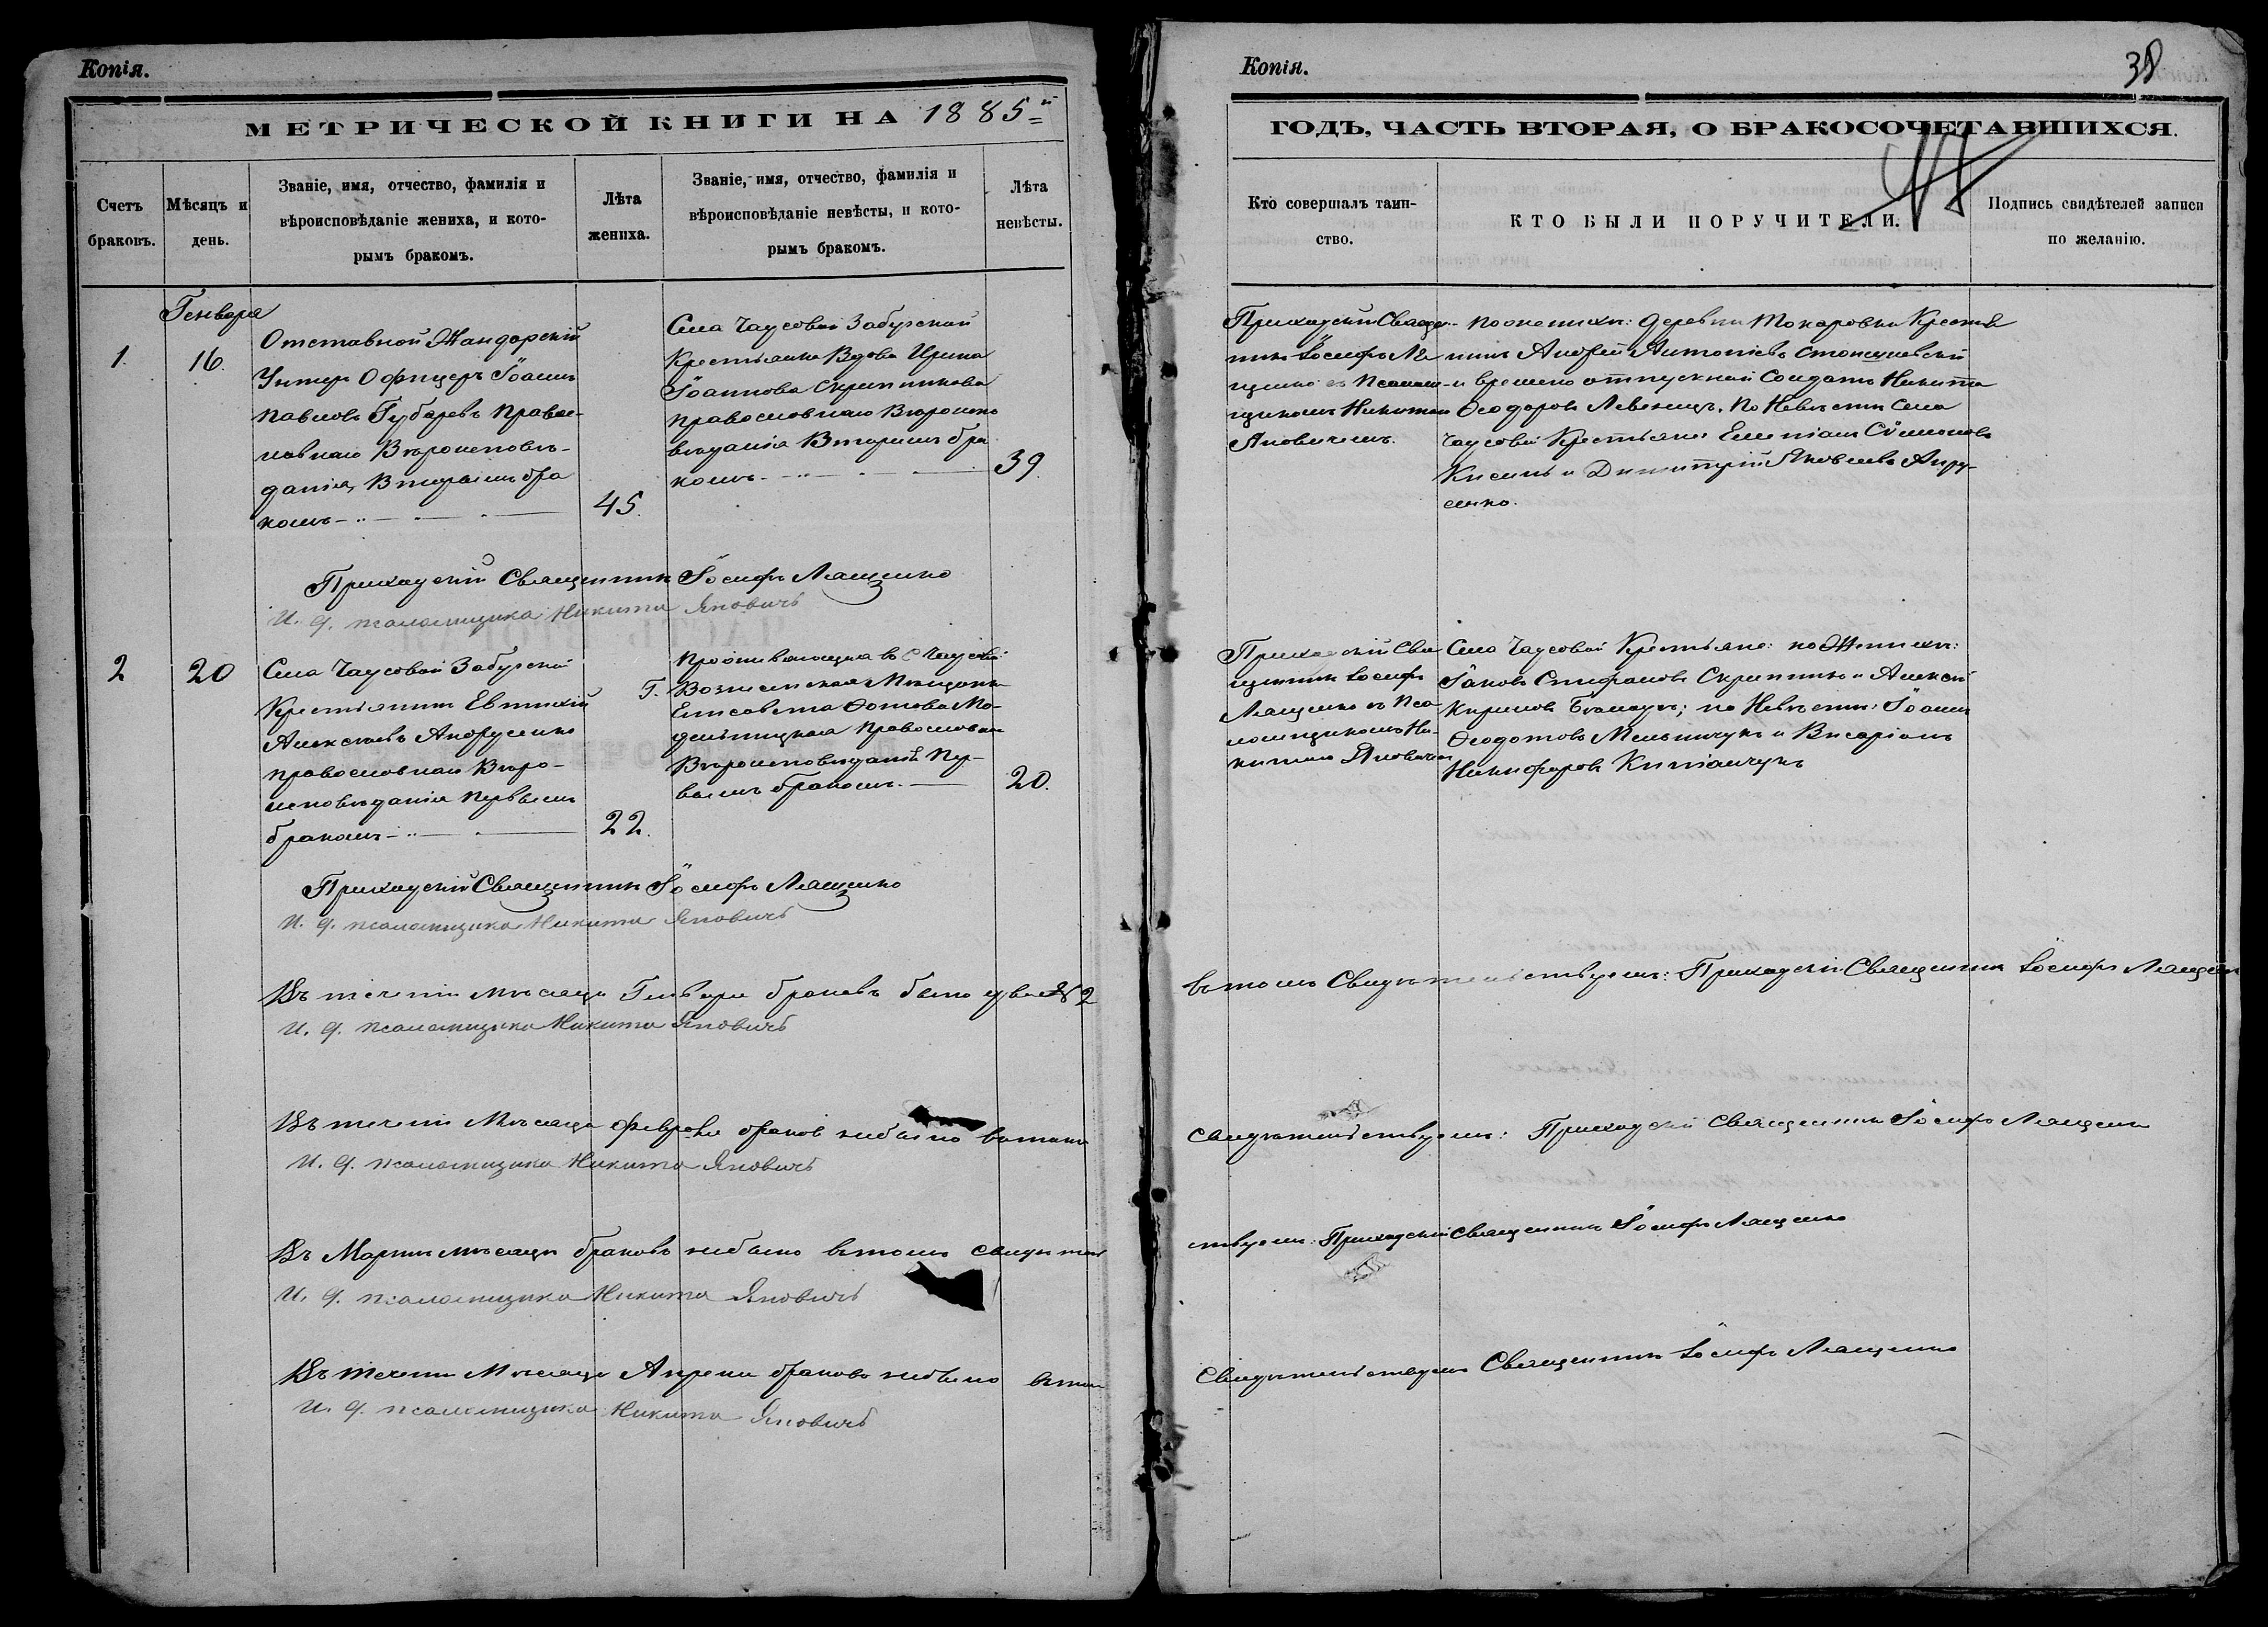 Копія.
МЕТРИЧЕСКОЙ КНИГИ НА 1885й
Счетъ браковъ.
Мѣсяцъ и день.
Званіе, имя, отчество, фамилія и
вѣроисповѣданіе жениха, и кото-
рымъ бракомъ.
Лѣта жениха.
Званіе, имя, отчество, фамилія и
вѣроисповѣданіе невѣсты, и кото-
рымъ бракомъ.
Лѣта невѣсты.
Генваря
1.
16.
Отставной Жандарскій
Унтеръ Офицеръ Іоаннъ
Павловъ Губаревъ Правос-
лавнаго Вѣроисповѣ-
данія, Вторымъ бра
комъ
45.
Села Чаусовой Забугской
Крестьянка Вдова Ирина
Іоаннова Скрипникова
православнаго Вѣроиспо
вѣданія Вторымъ бра
комъ
39.
Приходскій Священникъ Іосифъ Лященко
И. д. псаломщика Никита Яновичъ
2
20
Села Чаусовой Забугской
Крестьянинъ Евтихій
Алексѣевъ Андрусенко
православнаго Вѣро-
исповѣданія первымъ
бракомъ
22.
Проживающая въ с Чаусовой
Г. Вознесенская Мѣщанка
Елисавета Фотова
Православнаго
Вѣроисповѣданія Пер-
вымъ бракомъ.
20.
Приходскій Священникъ Іосифъ Лященко
И. д. псаломщика Никита Яновичъ
Въ теченіи мѣсяца Генваря браковъ было два № 2
И. д. псаломщика Никита Яновичъ
Въ теченіи Мѣсяца февраля браковъ небыло въ томъ
И. д. псаломщика Никита Яновичъ
Въ Мартѣ мѣсяцѣ браковъ небыло въ томъ свидѣтель
И. д. псаломщика Никита Яновичъ
Въ теченіи Мѣсяца Апреля браковъ небыло въ томъ
И. д. псаломщика Никита Яновичъ
Копія.
38
ГОДЪ, ЧАСТЬ ВТОРАЯ, О БРАКОСОЧЕТАВШИХСЯ.
Кто совершалъ таин-
ство.
КТО БЫЛИ ПОРУЧИТЕЛИ.
Подпись свидѣтелей записи
по желанію.
Приходскій Священ-
никъ Іосифъ Ля
щенко съ Псалом-
щикомъ Никитою
Яновичемъ.
по женихѣ: деревни Токаровки Крестья
нинъ Андрей Антоніевъ
и временно отпускной Солдатъ Никита
Феодоровъ Левенецъ. По Невѣстѣ Села
Чаусовой Крестьяне: Емеліанъ Симоновъ
Кисиль и Димитрій Яковлевъ Андру-
сенко.
Приходскій Свя
щенникъ Іосифъ
Лященко съ Пса
ломщикомъ Ни-
китою Яновичем
Села Чаусовой Крестьяне: по Женихѣ:
Іаковъ Стефановъ Скрипникъ и Алексій
Кириловъ; по Невѣстѣ: Іоаннъ
Феодотовъ Мельничукъ и Висаріонъ
Никифоровъ
въ томъ Свидѣтельствуемъ: Приходскій Священникъ Іосифъ Лященко
свидѣтельствуемъ: Приходскій Священникъ Іосифъ Лященко
ствуемъ: Приходскій Священникъ Іосифъ Лященко
Свидѣтельствуемъ Священникъ Іосифъ Лященко